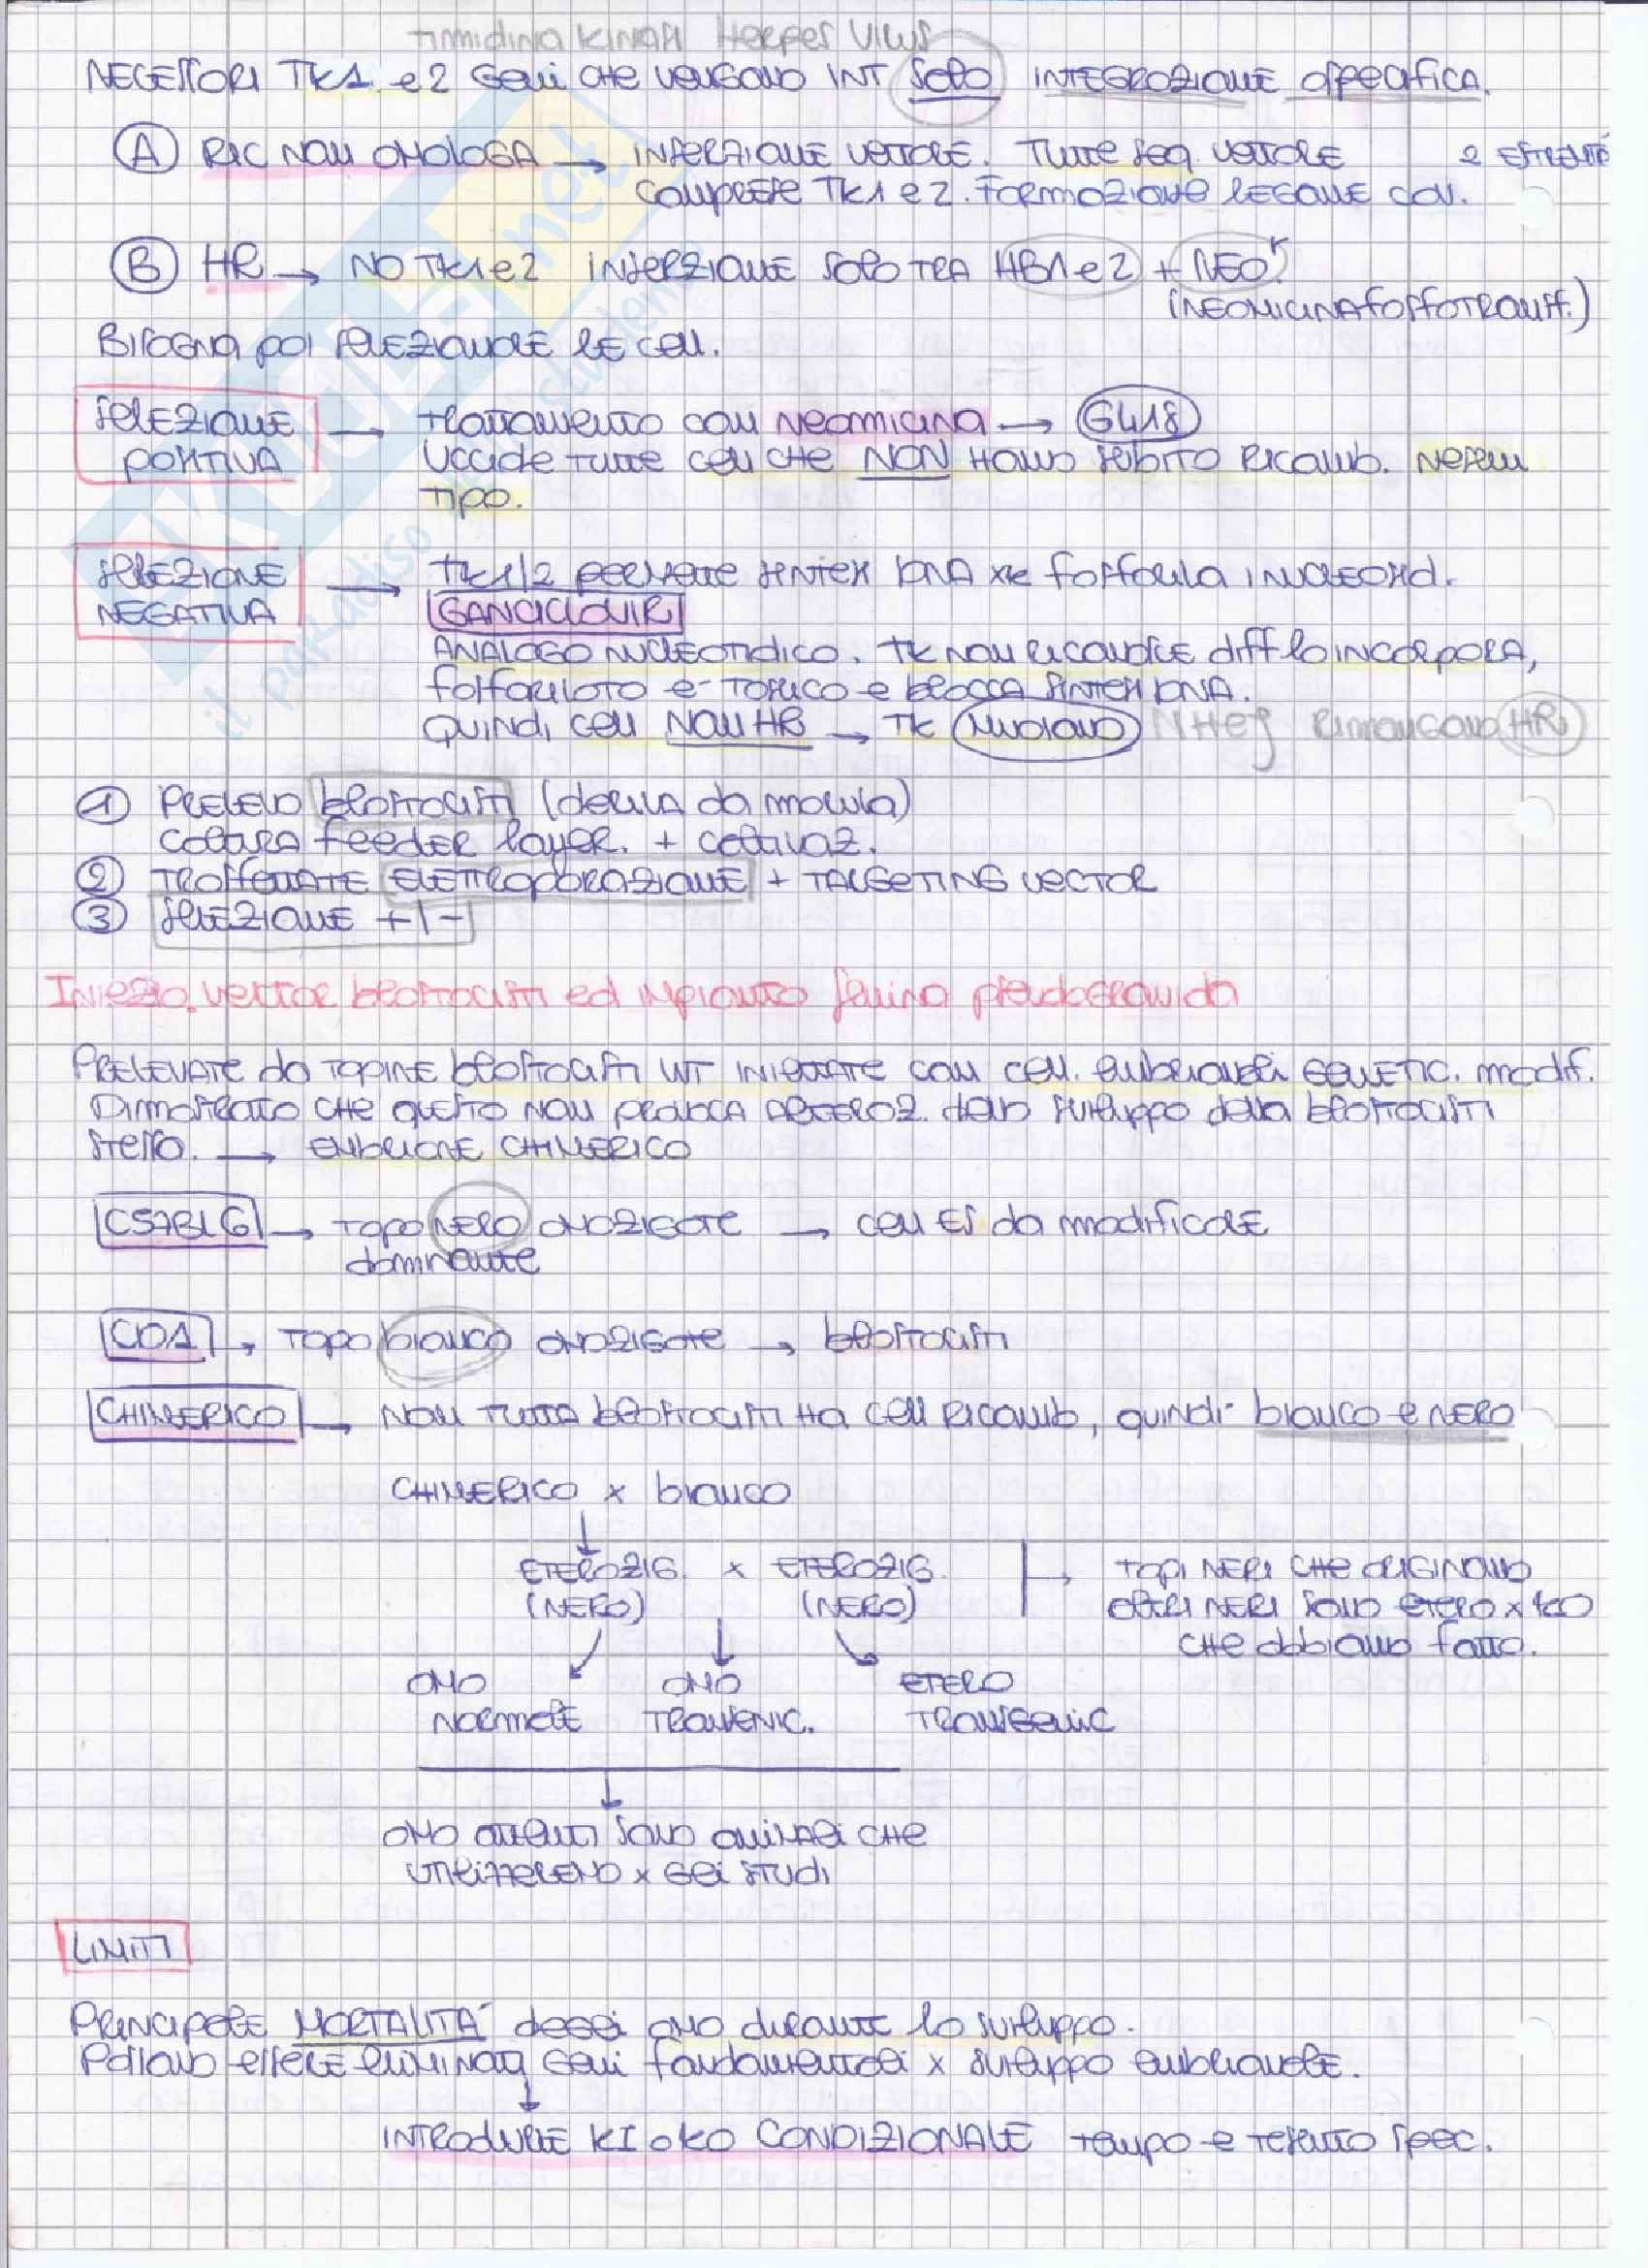 TIMIDINA KINASI HERPES VIRUS
NECESSARI TK1 e 2 GENI CHE VENGONO INT SOLO INTEGRAZIONE SPECIFICA.
A RIC NON OMOLOGA → INSERZIONE VETTORE. TUTTE SEQ. VETTORE 2 ESTREMITÀ
COMPRESE TK1 e 2. FORMAZIONE LEGAME COV.
B HR → NO TK1 e 2 INSERZIONE SOLO TRA HB1 e 2 + NEOr
(NEOMICINA FOSFOTRANSF.)
BISOGNA POI SELEZIONARE LE CELL.
SELEZIONE POSITIVA → trattamento con NEOMICINA → G418
UCCIDE TUTTE CELL CHE NON HANNO SUBITO RICOMB. NESSUN
TIPO.
SELEZIONE NEGATIVA → TK1/2 PERMETTE SINTESI DNA XKE FOSFORILA I NUCLEOSID.
GANCICLOVIR
ANALOGO NUCLEOTIDICO. TK NON RICONOSCE DIFF LO INCORPORA,
FOSFORILATO E' TOSSICO E BLOCCA SINTESI DNA.
QUINDI CELL NON HR → TK MUOIONO NHEJ RIMANGONO HR
1 PRELEVO BLASTOCISTI (DERIVA DA MORULA)
COLTURA FEEDER LAYER. + COLTIVAZ.
2 TRASFETTATE ELETTROPORAZIONE + TARGETING VECTOR
3 SELEZIONE +/-
INIEZIO. VECTOR BLASTOCISTI ED IMPIANTO FEMMINA PSEUDOGRAVIDA
PRELEVATE DA TOPINE BLASTOCISTI WT INIETTATE CON CELL. EMBRIONALI GENETIC. MODIF.
DIMOSTRATO CHE QUESTO NON PROVOCA ALTERAZ. DELLO SVILUPPO DELLA BLASTOCISTI
STESSO. → EMBRIONE CHIMERICO
C57BL6 → TOPO NERO OMOZIGOTE → CELL ES DA MODIFICARE
DOMINANTE
CD1 → TOPO BIANCO OMOZIGOTE → BLASTOCISTI
CHIMERICO → NON TUTTA BLASTOCISTI HA CELL RICOMB, QUINDI BIANCO E NERO
CHIMERICO x BIANCO
ETEROZIG. x ETEROZIG. → TOPI NERI CHE ORIGINANO
(NERO) (NERO) ALTRI NERI SONO ETERO x KO
CHE ABBIAMO FATTO.
OMO OMO ETERO
NORMALE TRANSENIC. TRANSGENIC
OMO OTTENUTI SONO ANIMALI CHE
UTILIZZEREMO x GLI STUDI
LIMITI
PRINCIPALE MORTALITÀ DEGLI OMO DURANTE LO SVILUPPO.
POSSONO ESSERE ELIMINATI GENI FONDAMENTALI x SVILUPPO EMBRIONALE.
INTRODURRE KI o KO CONDIZIONALE TEMPO E TESSUTO SPEC.